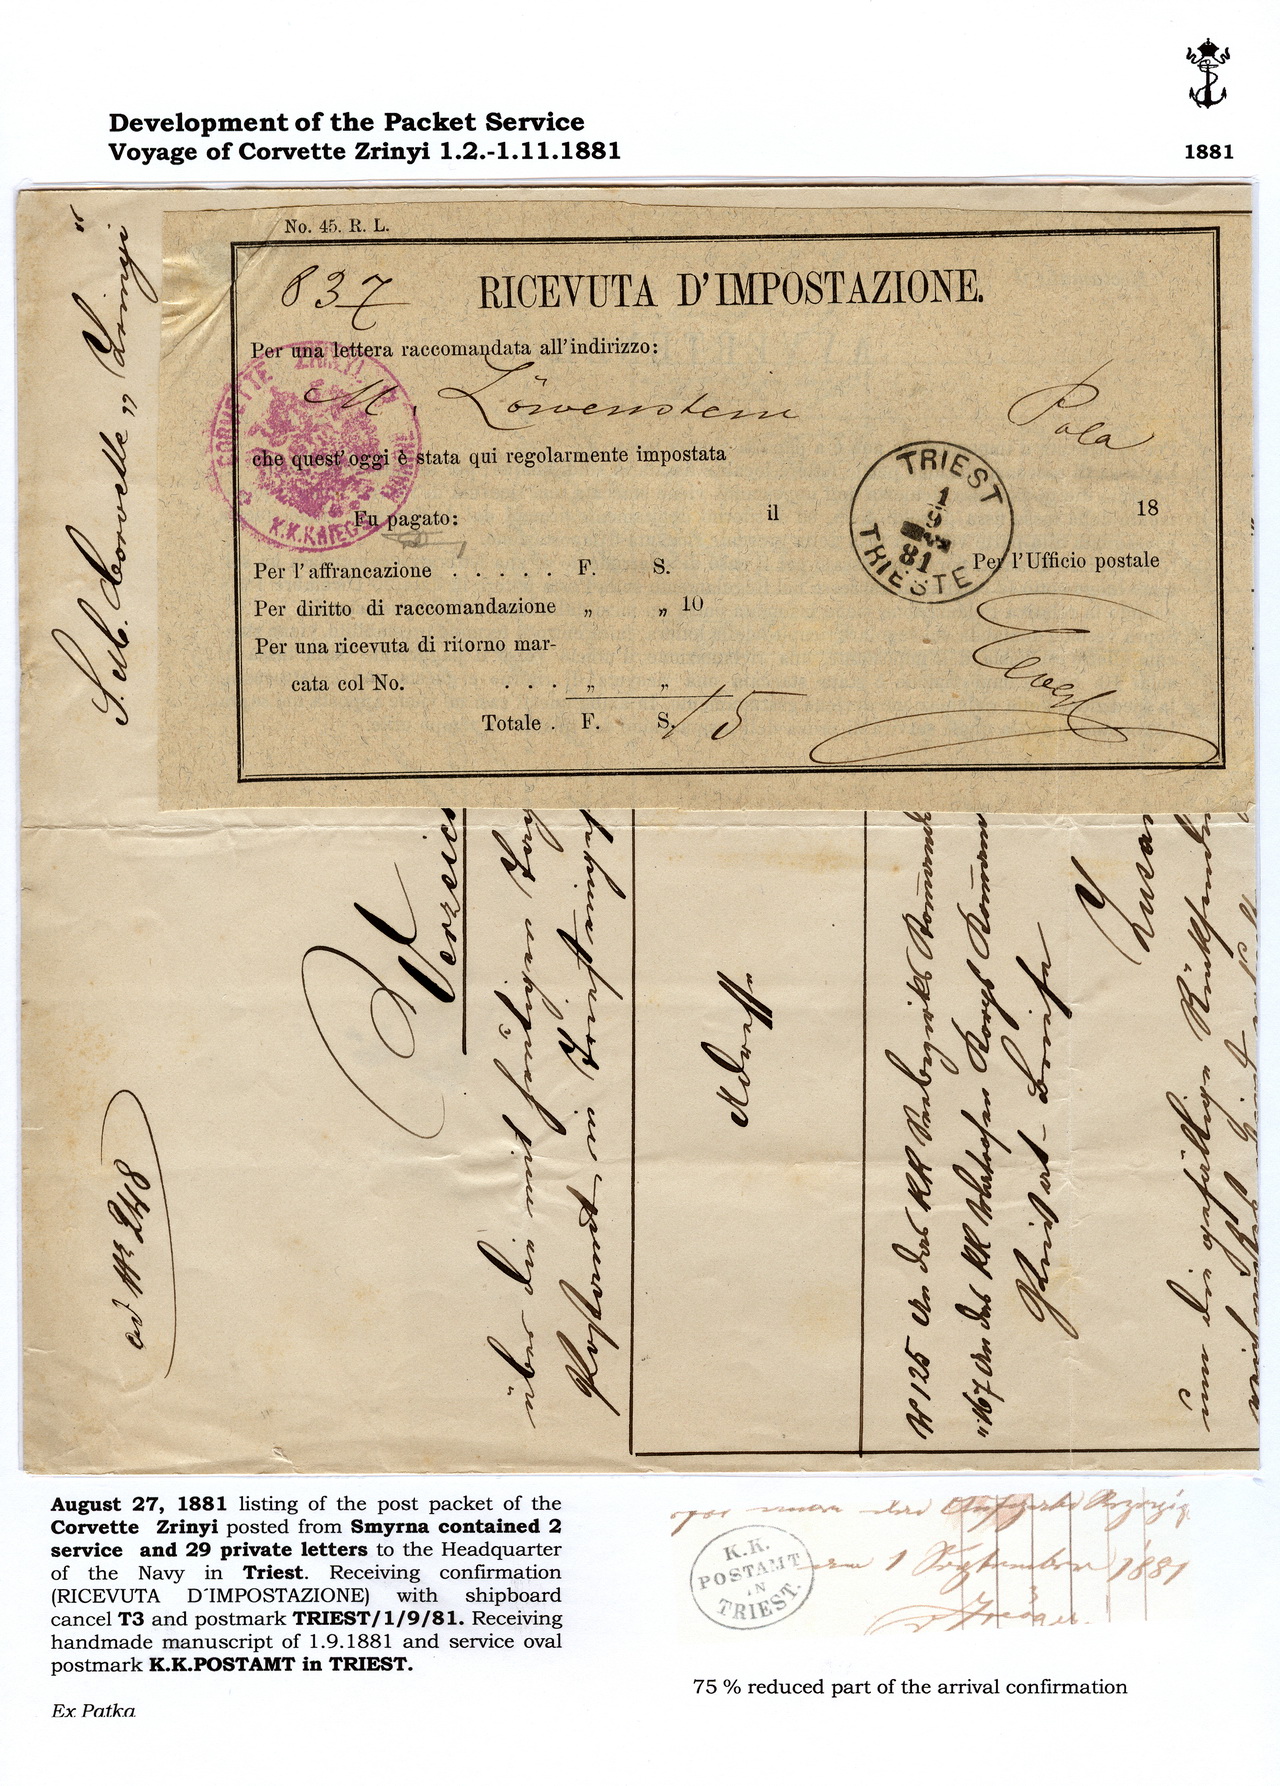 Development of the Packet Service
Voyage of Corvette Zrinyi 1.2.-1.11.1881
1881
S. M. Corvette „Zrinyi“
No. 45. R. L.
837
RICEVUTA D'IMPOSTAZIONE.
Per una lettera raccomandata all'indirizzo:
M. Löwenstein Pola
che quest'oggi è stata qui regolarmente impostata
CORVETTE ZRINYI
K.K. KRIEGS MARINE
Fu pagato:
il
18
TRIEST
1
9
81
TRIESTE
Per l'affrancazione . . . . . F. S.
Per l'Ufficio postale
Per diritto di raccomandazione „ „ 10
Per una ricevuta di ritorno mar-
cata col No. . . . „ „
Totale . F. S. 15
ad No 248
Verzeich
über die mit
Adresse
No 125 An das KK Seebezirks Kommando
"167 An das KK Matrosen Korps Komman
Privat-Briefe
um die gefällige
August 27, 1881 listing of the post packet of the
Corvette Zrinyi posted from Smyrna contained 2
service and 29 private letters to the Headquarter
of the Navy in Triest. Receiving confirmation
(RICEVUTA D´IMPOSTAZIONE) with shipboard
cancel T3 and postmark TRIEST/1/9/81. Receiving
handmade manuscript of 1.9.1881 and service oval
postmark K.K.POSTAMT in TRIEST.
Ex Patka
K.K.
POSTAMT
IN
TRIEST.
am 1 September 1881
75 % reduced part of the arrival confirmation